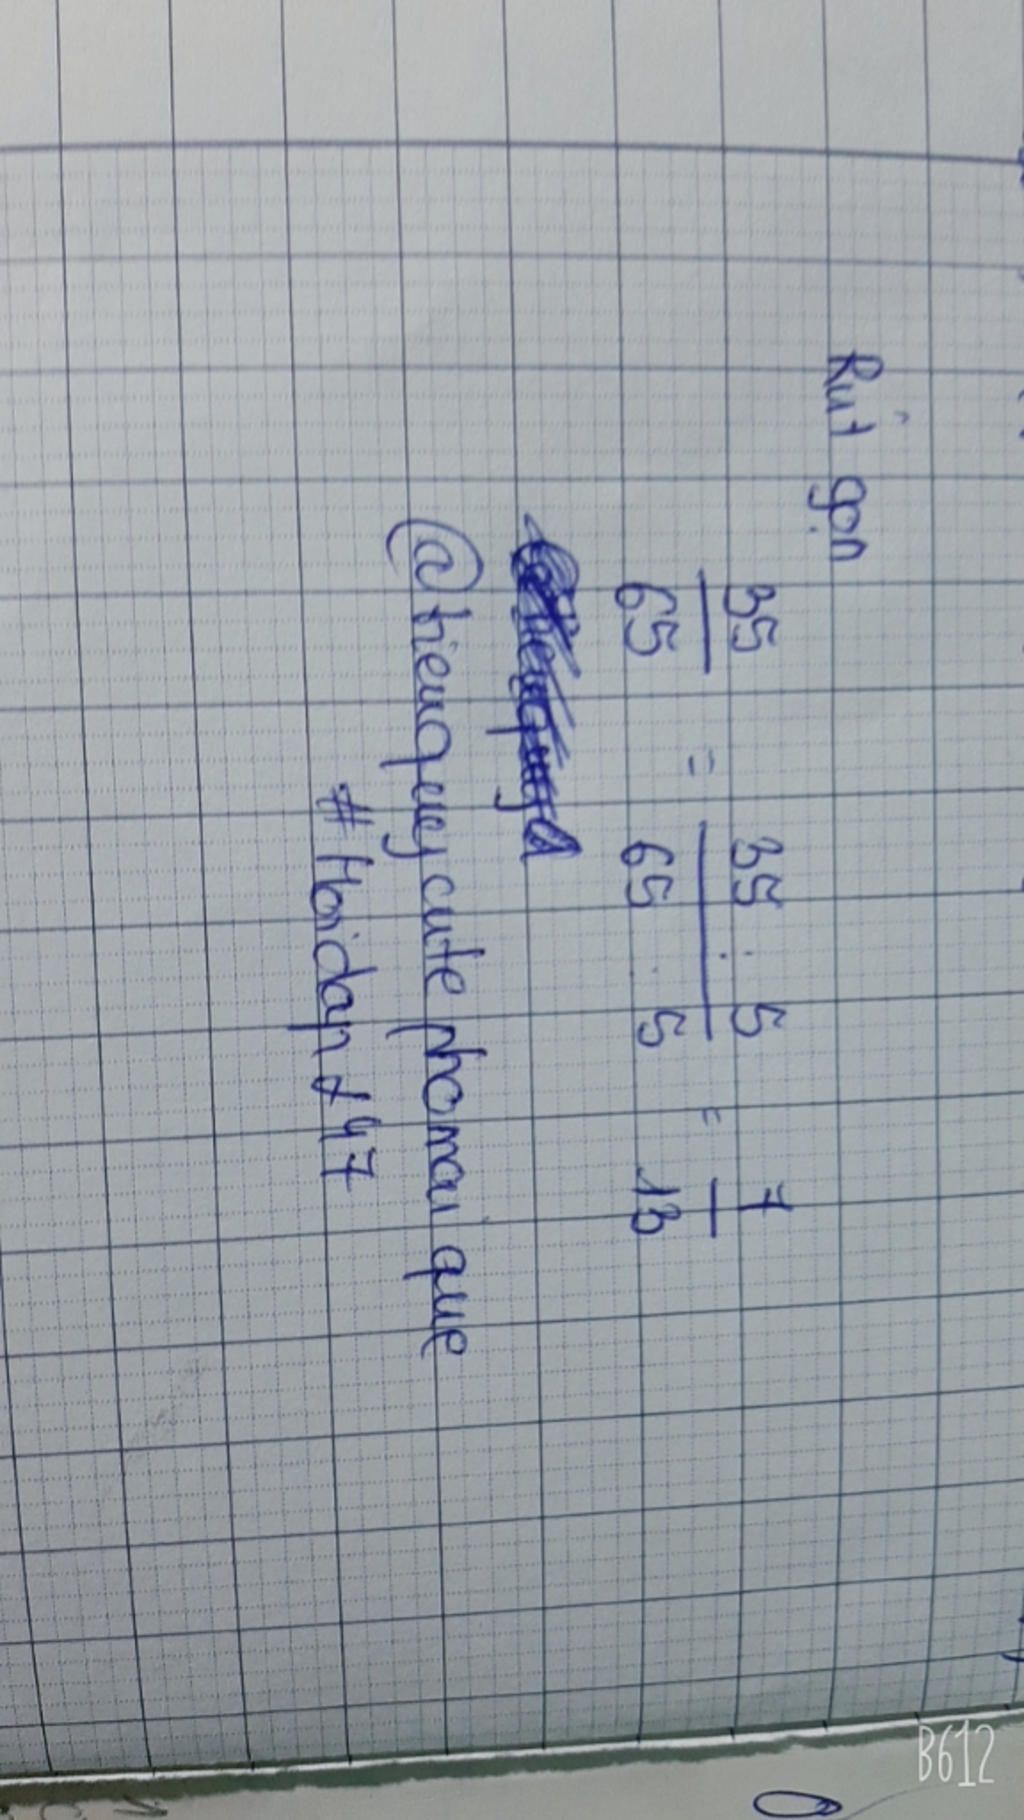 Rút gọn
35/65 = 35 : 5/65 : 5 = 7/13
@hieuquey cute phomai que
#Hoidap247
B612